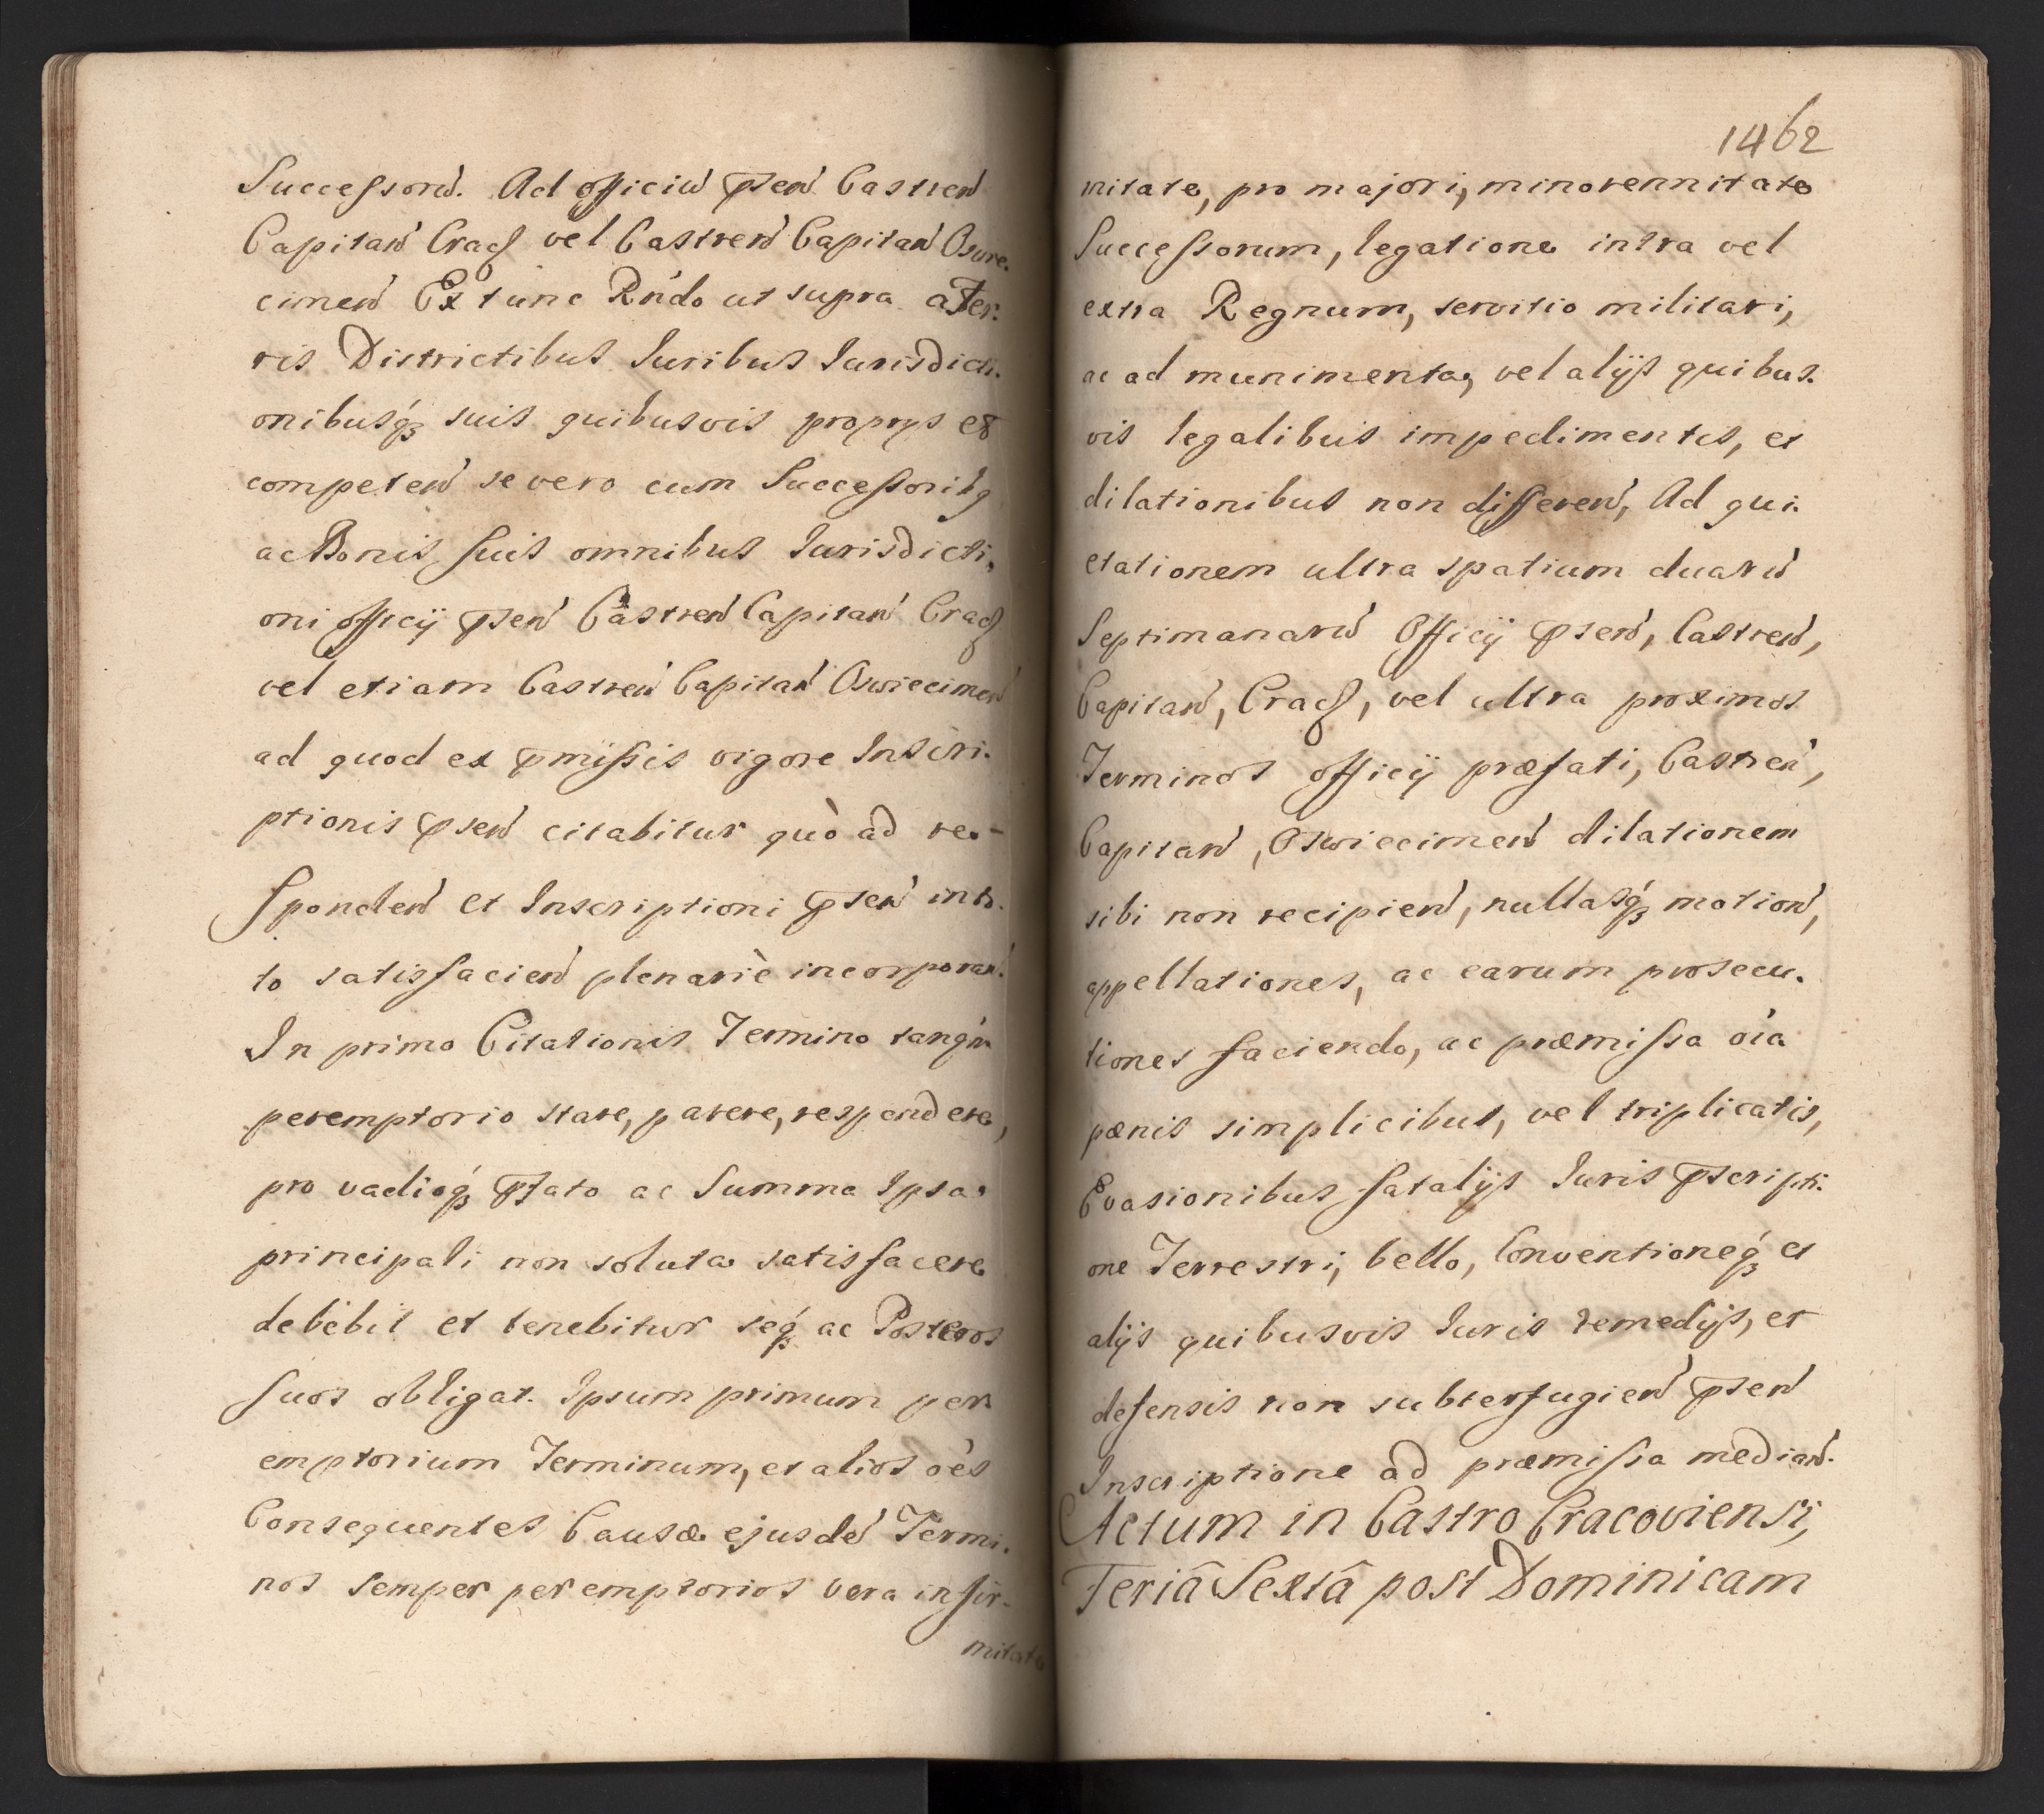 Successorũ. Ad officiũ p̃sen̄ Castren̄
Capitan̄ Crac̄ vel Castren̄ Capitan̄ Oswie.
cimen̄ Extunc Rńdo ut supra a Ter.
ris Districtibus Juribus Jurisdicti.
onibusq́ꝫ suis quibusvis proprijs et
competen̄ se vero cum Successoribq
ac Bonis suis omnibus Jurisdicti,
oni officij p̃sen̄ Castren̄ Capitan̄ Crac̄
vel etiam Castren̄ Capitan̄ Oswiecimen̄
ad quod ex p̃missis vigore Inscri.
ptionis p̃sen̄ citabitur quò ad re-
sponden̄ et Inscriptioni p̃sen̄ in to.
to satisfacien̄ plenariè incorporan̄.
In primo Citationis Termino tanq́m
peremptorio stare, parere, respondere,
pro vadioq́ꝫ p̃fato ac Summa Ipsa
principali non soluta satisfacere
debebit et tenebitur seq́ꝫ ac Posteros
suos obligat. Ipsum primum per
emptorium Terminum, et alios oe̍s
Consequentes Causæ ejusdē Termi.
nos semper peremptorios vera infir-
mitate
1462
mitate, pro majori, minorennitate
Successorum, legatione intra vel
extra Regnum, servitio militari,
ac ad munimenta, vel alijs quibus.
vis legalibus impedimentis, et
dilationibus non differen̄, Ad qui.
etationem ultra spatium duarũ
Septimanarũ Officij p̃sen̄, Castren̄,
Capitan̄, Crac̄, vel ultra proximos
Terminos officij præfati, Castren̄,
Capitan̄, Oswiecimen̄ dilationem
sibi non recipien̄, nullasq́ꝫ motion̄,
appellationes, ac earum prosecu.
tiones faciendo, ac præmissa oía
pœnis simplicibus, vel triplicatis,
Evasionibus fatalijs Juris p̃scripti.
one Terrestri, bello, Conventioneq́ꝫ et
alijs quibusvis Juris remedijs, et
defensis non subterfugien̄ p̃sen̄
Inscriptione ad præmissa median̄.
Actum in Castro Cracoviensi,
Feriâ Sextâ post Dominicam